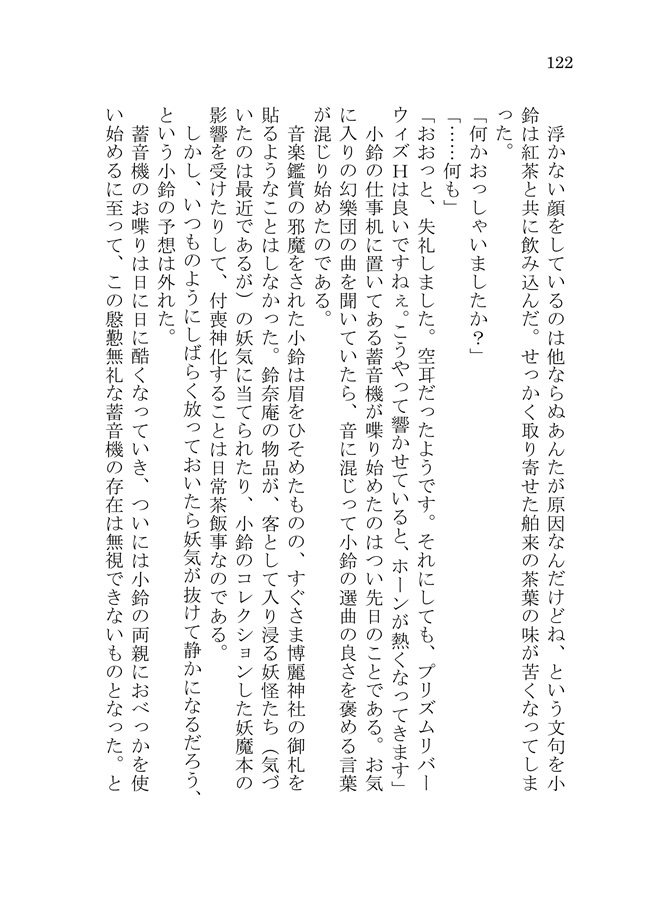 122
浮かない顔をしているのは他ならぬあんたが原因なんだけどね、という文句を小
鈴は紅茶と共に飲み込んだ。せっかく取り寄せた舶来の茶葉の味が苦くなってしま
った。
「何かおっしゃいましたか？」
「……何も」
「おおっと、失礼しました。空耳だったようです。それにしても、プリズムリバー
ウィズＨは良いですねぇ。こうやって響かせていると、ホーンが熱くなってきます」
小鈴の仕事机に置いてある蓄音機が喋り始めたのはつい先日のことである。お気
に入りの幻樂団の曲を聞いていたら、音に混じって小鈴の選曲の良さを褒める言葉
が混じり始めたのである。
音楽鑑賞の邪魔をされた小鈴は眉をひそめたものの、すぐさま博麗神社の御札を
貼るようなことはしなかった。鈴奈庵の物品が、客として入り浸る妖怪たち（気づ
いたのは最近であるが）の妖気に当てられたり、小鈴のコレクションした妖魔本の
影響を受けたりして、付喪神化することは日常茶飯事なのである。
しかし、いつものようにしばらく放っておいたら妖気が抜けて静かになるだろう、
という小鈴の予想は外れた。
蓄音機のお喋りは日に日に酷くなっていき、ついには小鈴の両親におべっかを使
い始めるに至って、この慇懃無礼な蓄音機の存在は無視できないものとなった。と